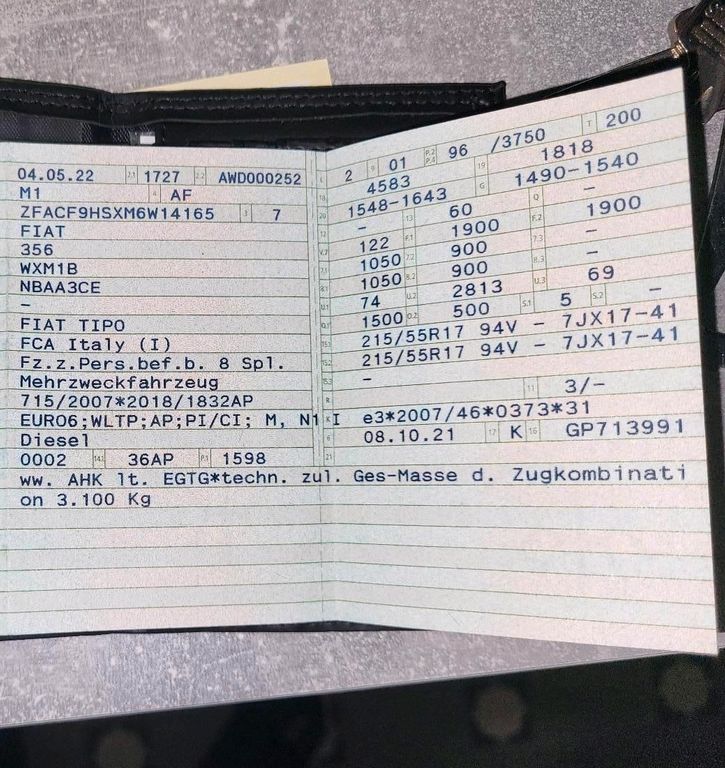 04.05.22 2.1 1727 2.2 AWD000252
M1 4 AF
ZFACF9HSXM6W14165 3 7
FIAT
356
WXM1B
NBAA3CE
–
FIAT TIPO
FCA Italy (I)
Fz.z.Pers.bef.b. 8 Spl.
Mehrzweckfahrzeug
715/2007*2018/1832AP
EURO6;WLTP;AP;PI/CI; M, N1 I
Diesel
0002 14.1 36AP P.1 1598
2 9 01 P.2 P.4 96 /3750 T 200
18 4583 19 1818
20 1548-1643 G 1490-1540
12 – 13 60 Q –
V.7 122 F.1 1900 F.2 1900
7.1 1050 7.2 900 7.3 –
8.1 1050 8.2 900 8.3 –
U.1 74 U.2 2813 U.3 69
O.1 1500 O.2 500 S.1 5 S.2 –
15.1 215/55R17 94V – 7JX17-41
15.2 215/55R17 94V – 7JX17-41
15.3 –
R 11 3/–
K e3*2007/46*0373*31
6 08.10.21 17 K 16 GP713991
21
ww. AHK lt. EGTG*techn. zul. Ges-Masse d. Zugkombinati
on 3.100 Kg